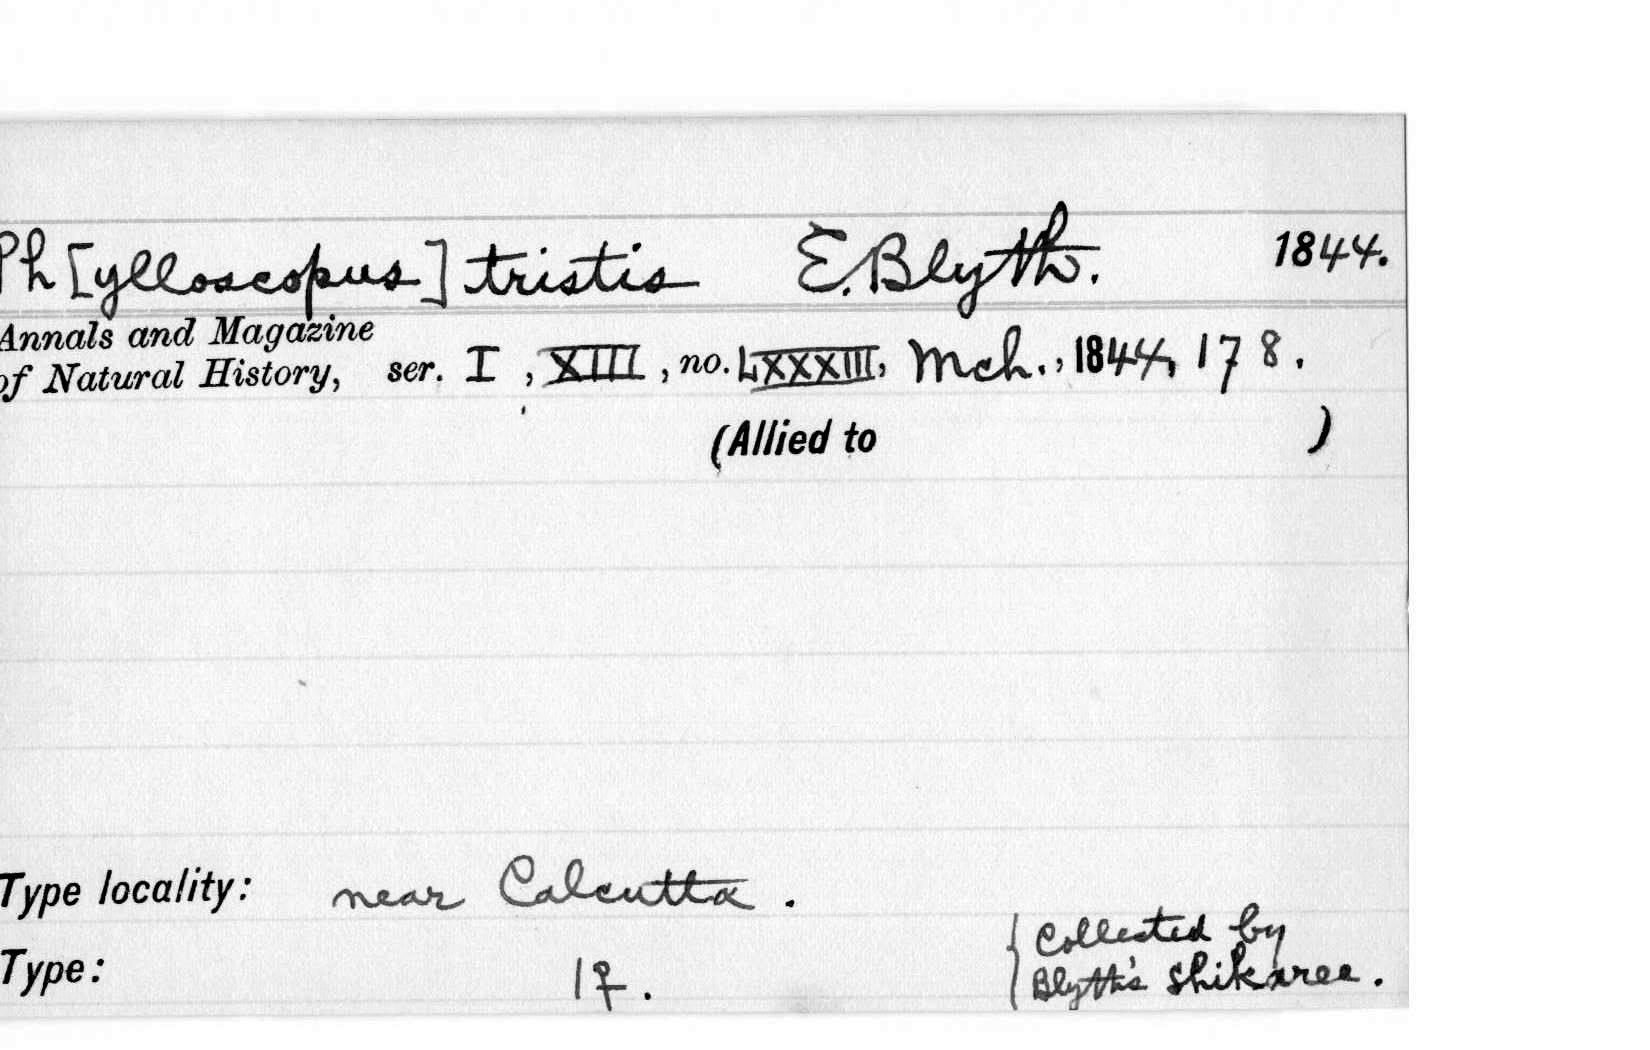 Ph[ylloscopus] tristis E. Blyth. 1844.
Annals and Magazine
of Natural History, ser. I, XIII, no. LXXXIII, Mch., 1844, 178.
(Allied to )
Type locality: near Calcutta.
Type: 1♀. {Collected by
Blyth's Shikaree.